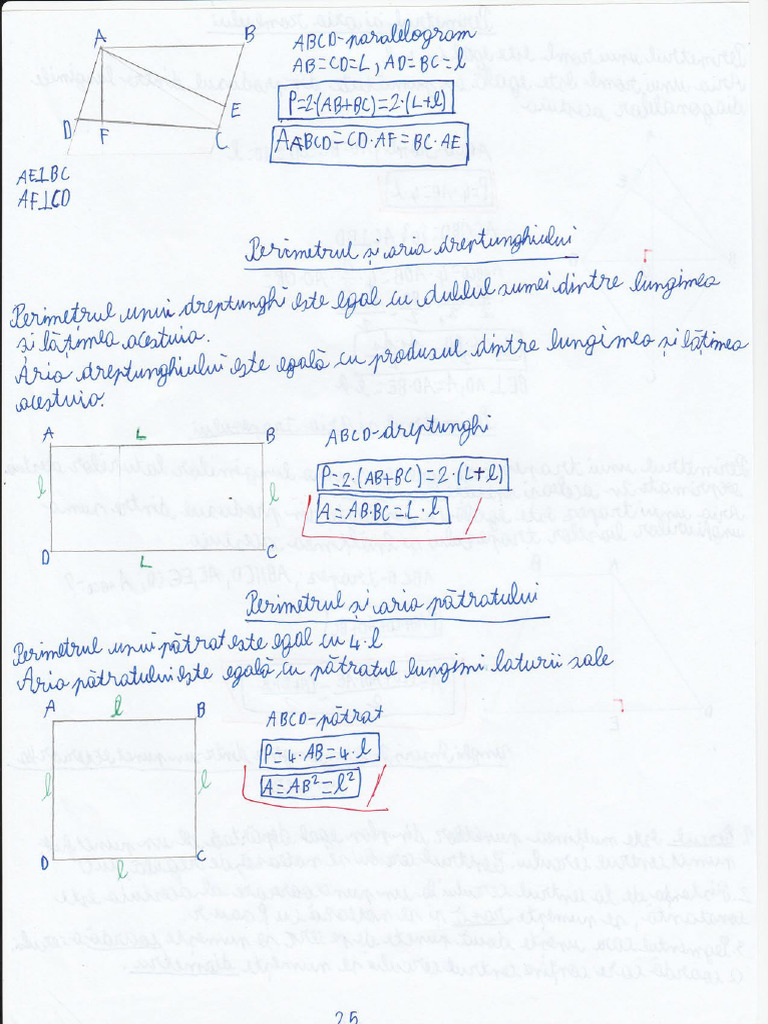 A
B
ABCD-paralelogram
AB=CD=L, AD=BC=l
P=2·(AB+BC)=2·(L+l)
E
D
F
C
AABCD=CD·AF=BC·AE
AE⊥BC
AF⊥CD
Perimetrul și aria dreptunghiului
Perimetrul unui dreptunghi este egal cu dublul sumei dintre lungimea
și lățimea acestuia.
Aria dreptunghiului este egală cu produsul dintre lungimea și lățimea
acestuia.
A L B
ABCD-dreptunghi
P=2·(AB+BC)=2·(L+l)
l l
A=AB·BC=L·l
D L C
Perimetrul și aria pătratului
Perimetrul unui pătrat este egal cu 4·l
Aria pătratului este egală cu pătratul lungimi laturii sale
A l B
ABCD-pătrat
P=4·AB=4·l
l l
A=AB²=l²
D l C
25